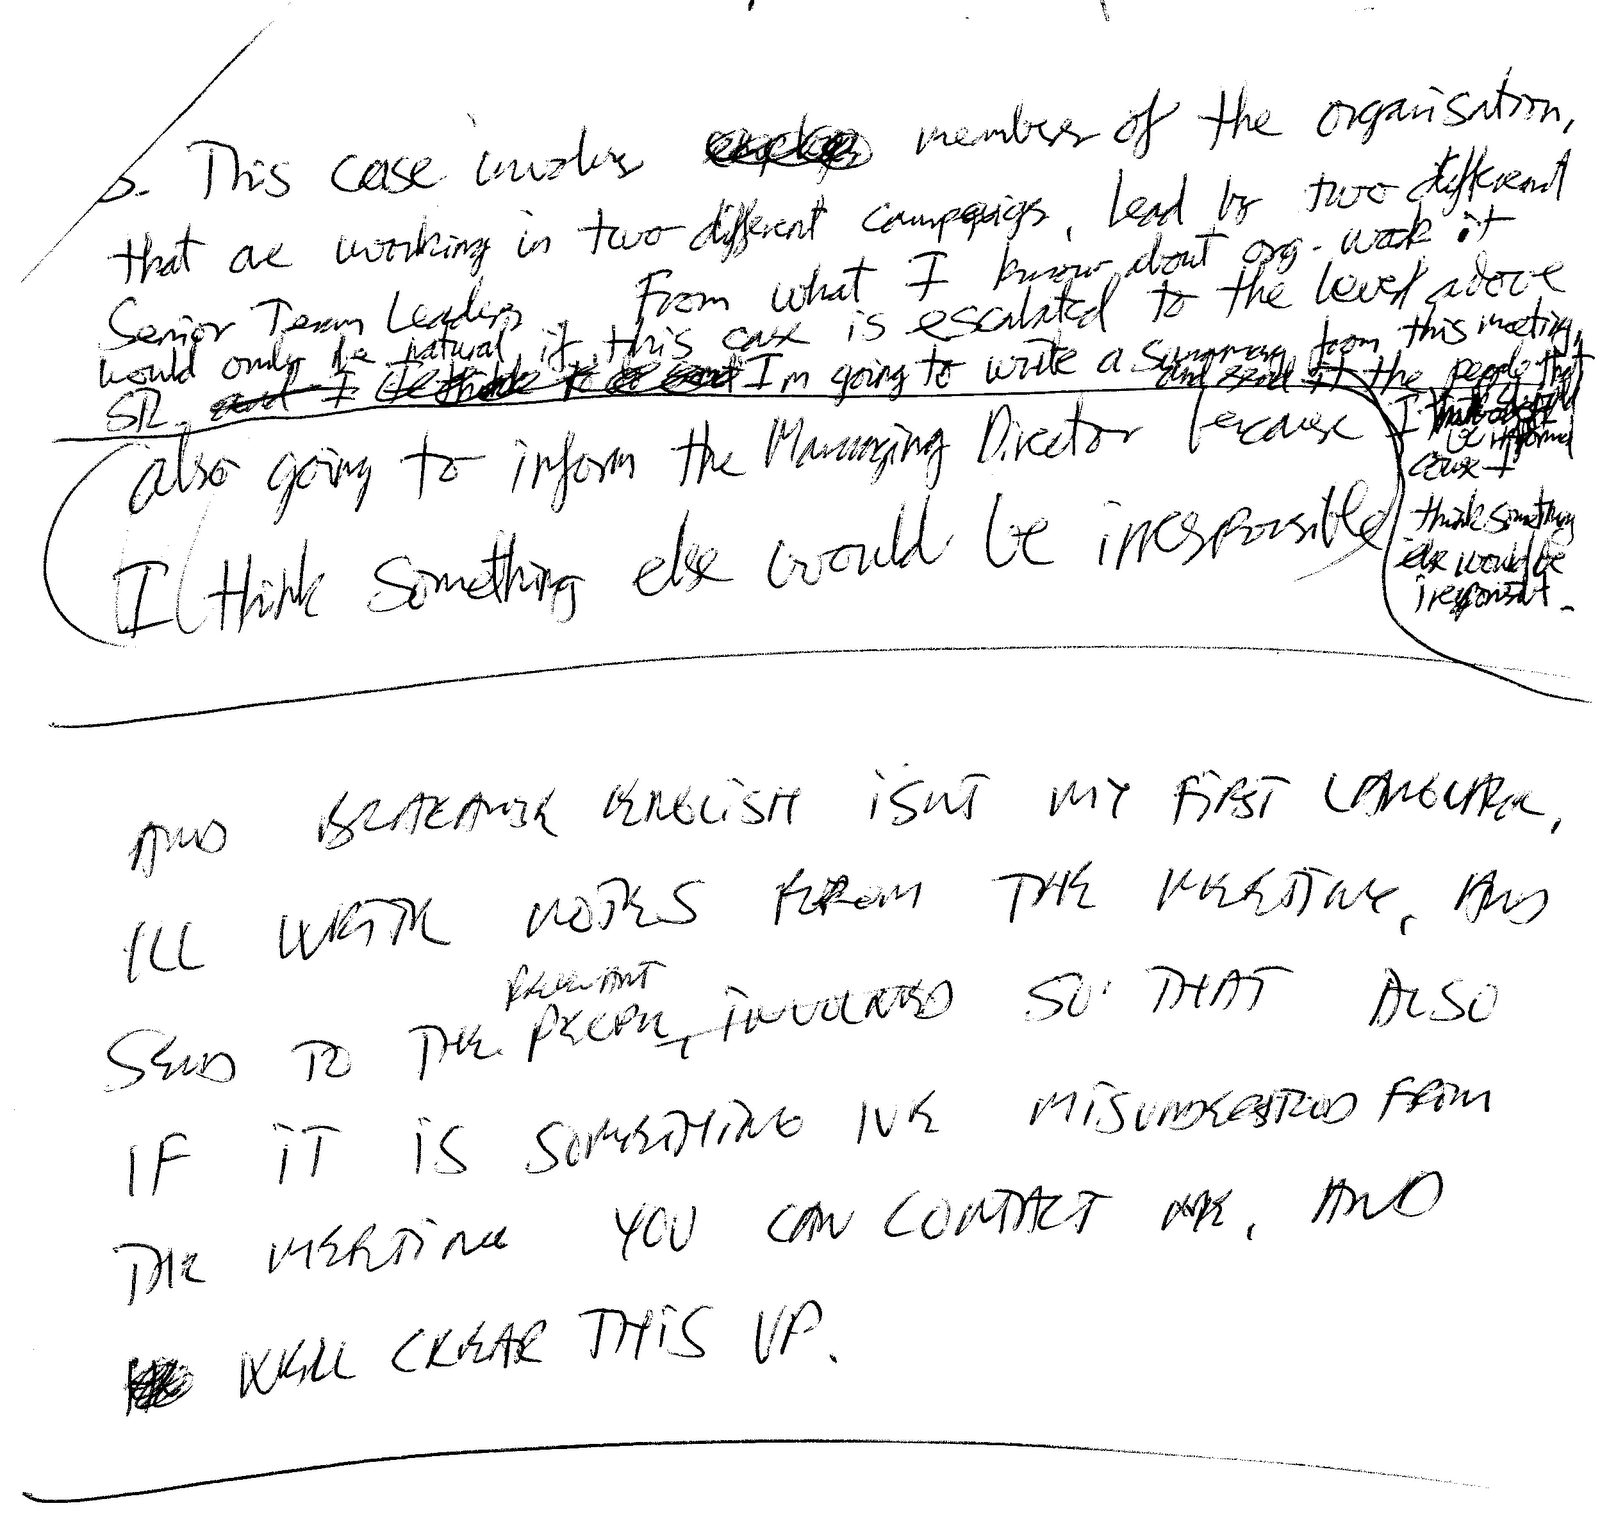 5. This case involves members of the organisation,
that are working in two different campaigns, lead by two different
Senior Team Leaders. From what I know about org. work it
would only be natural if this case is escalated to the level above
SR. I'm going to write a summary from this meeting,
and send it the people that
I should
be informed
cause I
think something
else would be
irresponsibl.
also going to inform the Managing Director because
I think something else would be irresponsible
AND BECAUSE ENGLISH ISNT MY FIRST LANGUAGE,
ILL WRITE NOTES FROM THE MEETING, AND
RELEVANT
SEND TO THE PEOPLE, INVOLVED SO THAT ALSO
IF IT IS SOMETHING IVE MISUNDERSTOOD FROM
THE MEETING YOU CAN CONTACT ME, AND
WE'LL CLEAR THIS UP.